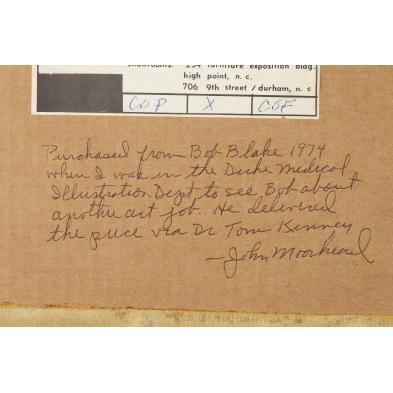 showrooms: 234 furniture exposition bldg.
high point, n. c.
706 9th street / durham, n. c
COP X COF
Purchased from Bob Blake 1974
when I was in the Duke Medical
Illustration Dept to see Bob about
another art job. He delivered
the piece via Dr Tom Kenney
—John Moorhead